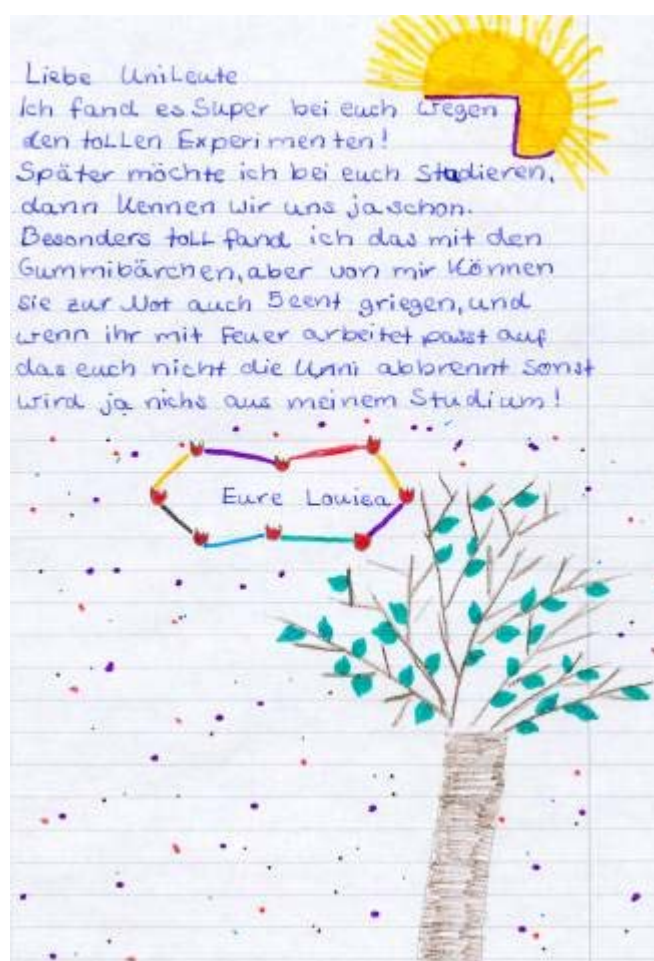 Liebe UniLeute
Ich fand es Super bei euch wegen
den toLLen Experimenten!
Später möchte ich bei euch Studieren,
dann kennen wir uns ja schon.
Besonders toLL fand ich das mit den
Gummibärchen, aber von mir können
sie zur Not auch 5cent griegen, und
wenn ihr mit Feuer arbeitet passt auf
das euch nicht die Unni abbrennt sonst
wird ja nichs aus meinem Studium!
Eure Louisa